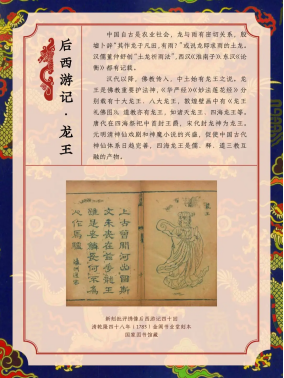 后西游记·龙王
中国自古是农业社会，龙与雨有密切关系，殷
墟卜辞“其作龙于凡田，有雨？”或说龙即求雨的土龙。
汉儒董仲舒创“土龙祈雨法”，西汉《淮南子》、东汉《论
衡》都有记载。
汉代以降，佛教传入，中土始有龙王之说。龙
王是佛教重要护法神，《华严经》《妙法莲花经》分
别载有十大龙王、八大龙王，敦煌壁画中有《龙王
礼佛图》。道教亦有龙王，如诸天龙王、四海龙王等。
唐代在四海祭祀中首封王爵，宋代封龙神为龙王。
元明清神仙戏剧和神魔小说的兴盛，促使中国古代
神仙体系日趋完善，四海龙王是儒、释、道三教互
融的产物。
上古曾闻河出图斯
文未丧在
龙王
心作焉
新刻批评绣像后西游记四十回
清乾隆四十八年（1783）金阊书业堂刻本
国家图书馆藏